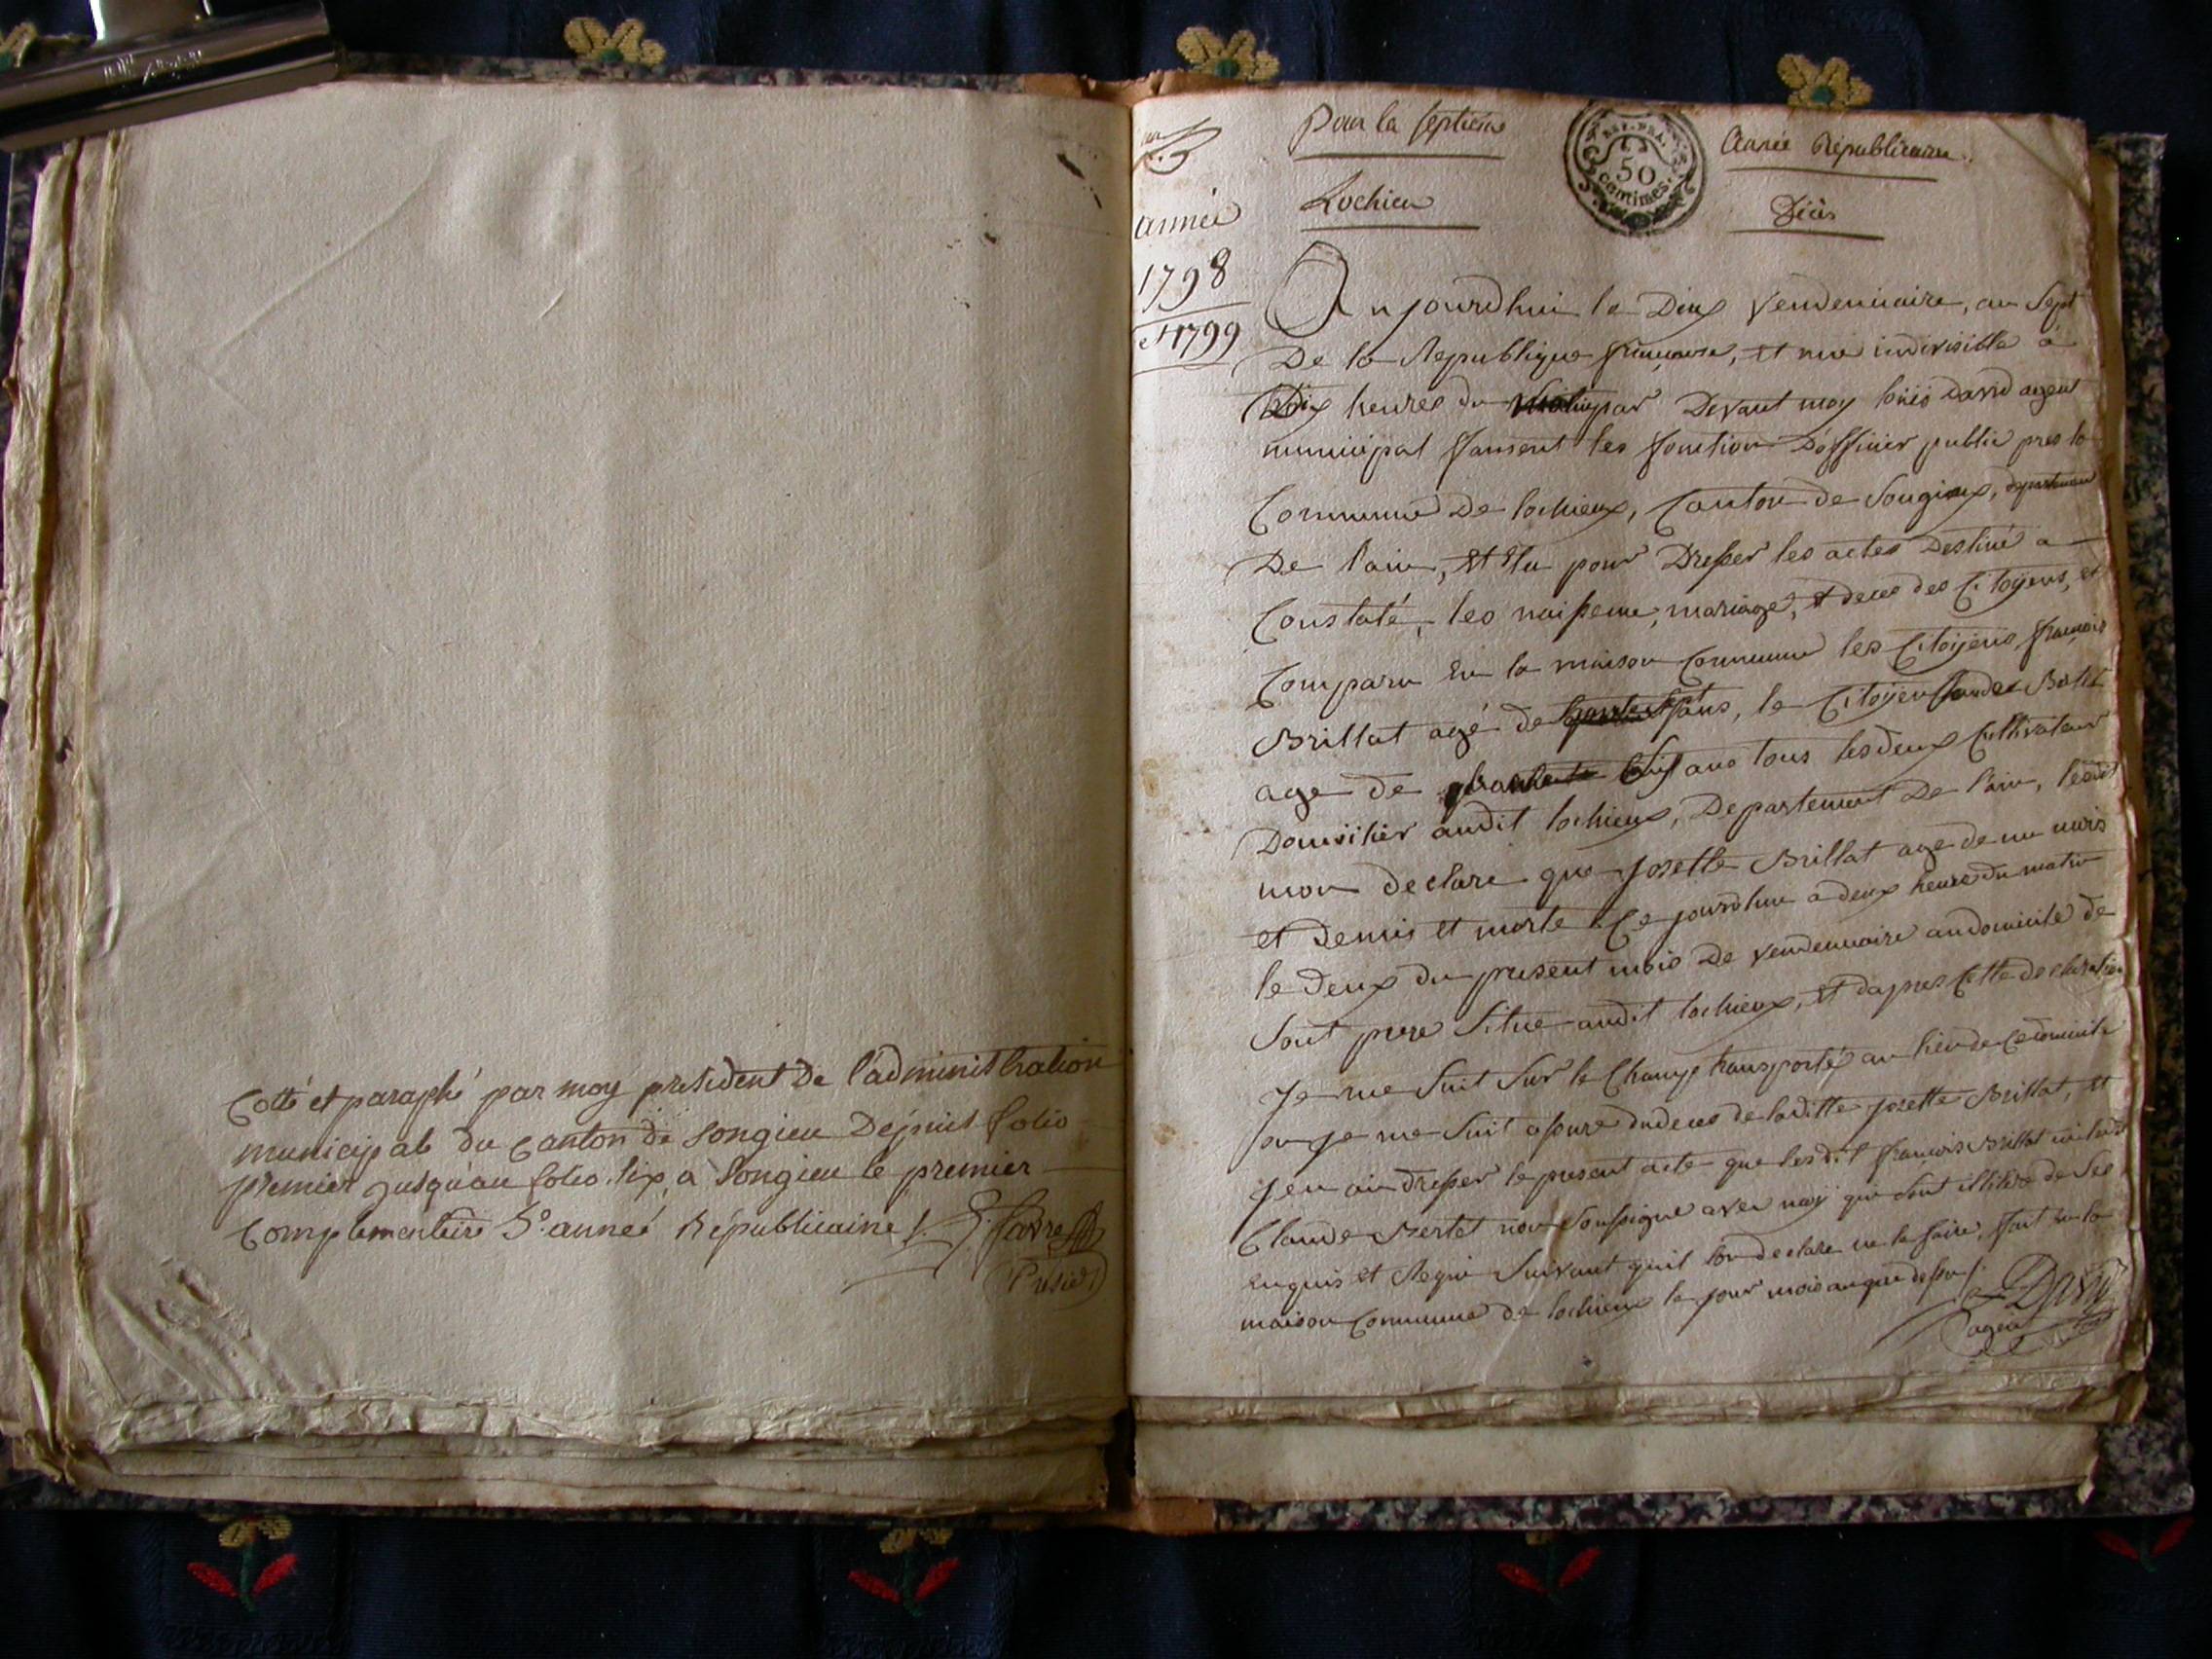 Cotté et paraphé par moy president De l'administration
municipale du Canton de Songieu Depuis folio
premier jusqu'au folio six, a Songieu le premier
Complementaire 5.e année Républicaine
Presid
Pour la septieme
Année Républicaine.
REP. FRA.
50
centimes
Lochieu
Décès
année
1798
et 1799
Aujourdhui le Deux Vendemiaire, an Sept
De la Republique francaise, et une indivisible à
heures du Devant moy loüis David agent
municipal faisent les fonction D'officier public pres la
Commune De lochieux, Canton de Songieux, departement
De l'ain, et Elu pour Dresser les actes Destiné a
Constaté, les naissence, mariage, et deces des Citoyens, et
Comparu En la maison Commune les Citoyens françois
Brillat agé de ans, le Citoyen
age de ans tous les deux Cultivateur
Domicilier audit lochieux, Departement De l'ain, lesdit
mon declare que Josette Brillat age de un mois
et Demis et morte Ce jourdhui a deux heures du matin
le Deux du present mois De vendemiaire au domicile de
Sont pere Situé audit lochieux, et dapres Cette declaration
Je me Suit Sur le Champ transporté au lieu de Ce domicile
ou je me Suit assuré du deces de laditte Josette Brillat, et
Jen ai dresser le present acte que lesdit françois Brillat
Claude Bertet non Soussigne avec moy qui sont illitere de Ses
enquis et Requi Suivant quil lon declare ne le faire, fait en la
maison Commune de lochieux le jour mois an que dessus
David
agent